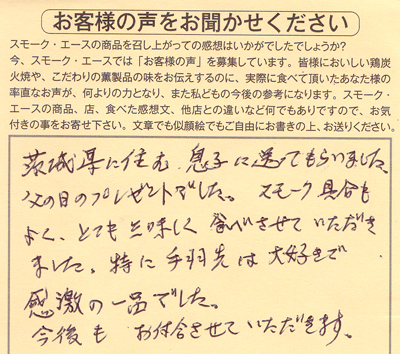 お客様の声をお聞かせください
スモーク・エースの商品を召し上がっての感想はいかがでしたでしょうか?
今、スモーク・エースでは「お客様の声」を募集しています。皆様においしい鶏炭
火焼や、こだわりの薫製品の味をお伝えするのに、実際に食べて頂いたあなた様の
率直なお声が、何よりの力となり、また私どもの今後の参考になります。スモーク・
エースの商品、店、食べた感想文、他店との違いなど何でもありですので、お気
付きの事をお寄せ下さい。文章でも似顔絵でもご自由にお書きの上、お送りください。
茨城県に住む 息子に送ってもらいました。
父の日のプレゼントでした。 スモーク具合も
よく、とても美味しく 食べさせていただき
ました。特に手羽先は大好きで
感激の一品でした。
今後も お付合させていただきます。